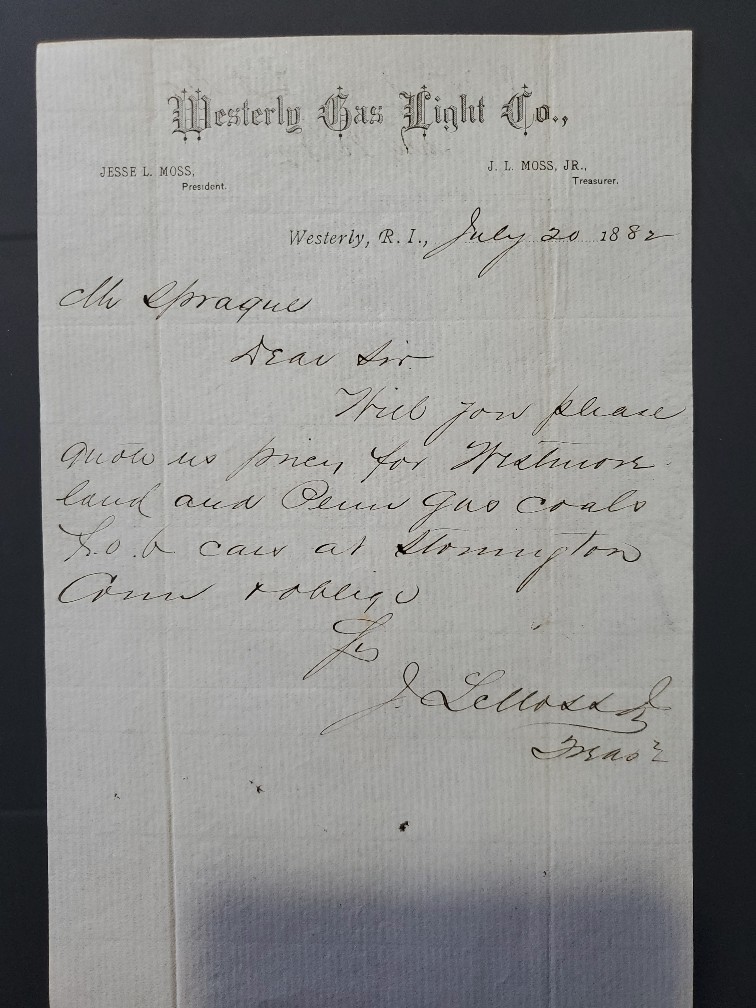 Westerly Gas Light Co.,
JESSE L. MOSS,
President.
J. L. MOSS, JR.,
Treasurer.
Westerly, R. I., July 20 1882
Mr Sprague
Dear Sir
Will you please
quote us prices for Westmore-
land and Penn gas coals
F.o.b cars at Stonington
Conn & oblige
Yrs
J. L. Moss Jr
Treasr